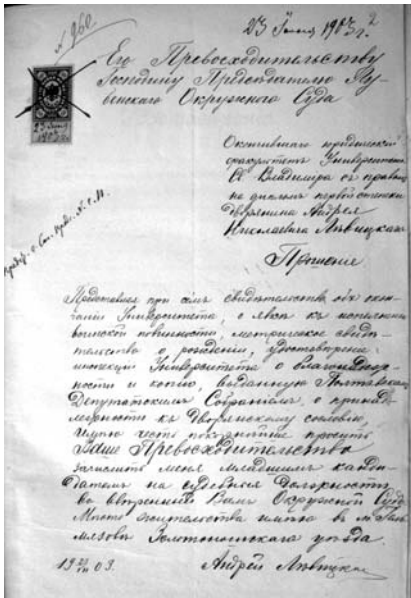 23 Іюня 1903 г.
N. 960.
Его Превосходительству
Господину Председателю Лу-
бенскаго Окружного Суда
23 Іюня
1903 г.
Окончившаго юридическій
факультетъ Университета
Св. Владиміра съ правомъ
на дипломъ первой степени
дворянина Андрея
Николаевича Лѣвицкаго
Прошеніе
Представляя при семъ свидѣтельства, объ окон-
чаніи Университета, о явкѣ къ исполненію
воинской повинности, метрическое свидѣ-
тельство о рожденіи, удостовѣреніе
инспекціи Университета о благонадеж-
ности и копію, выданную Полтавскимъ
Депутатскимъ Собраніемъ, о принад-
лежности къ дворянскому сословію,
имѣю честь покорнѣйше просить
Ваше Превосходительство
зачислить меня младшимъ канди-
датомъ на судебныя должности
во ввѣренный Вамъ Окружной Судъ.
Мѣсто жительства имѣю въ м. Гель-
мязовѣ Золотоношскаго уѣзда.
19 03. Андрей Лѣвицкій